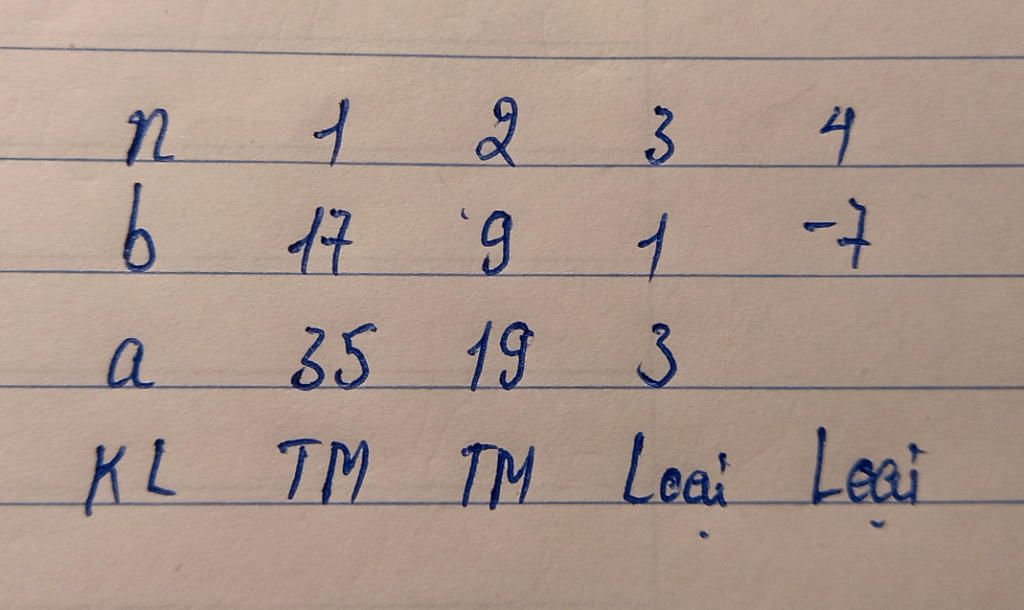 n 1 2 3 4
b 17 9 1 -7
a 35 19 3
KL TM TM Loại Loại